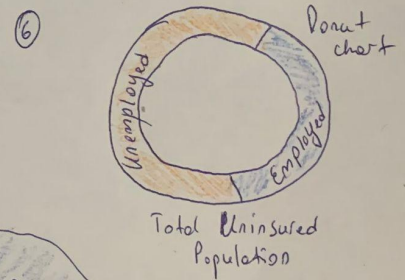 6
Donut
chart
Unemployed
Employed
Total Uninsured
Population